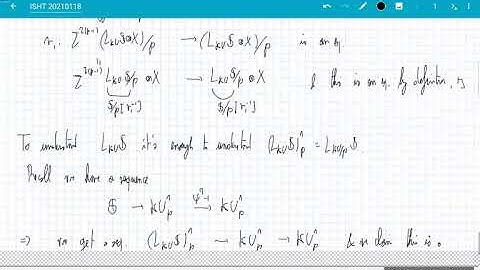 ISHT 20210118
v₁: Σ^{2(p-1)} (L_{KU}𝕊⊗X)/p → (L_{KU}𝕊⊗X)/p is an eq.
Σ^{2(p-1)} L_{KU}𝕊/p ⊗X → L_{KU}𝕊/p ⊗X & this is an eq. by definition,
𝕊/p[v₁⁻¹] 𝕊/p[v₁⁻¹]
To understand L_{KU}𝕊 it's enough to understand (L_{KU}𝕊)^_p = L_{KU/p}𝕊.
Recall we have a sequence
→ KU^_p → KU^_p
⇒ we get a seq. (L_{KU}𝕊)^_p → KU^_p → KU^_p & we claim this is a